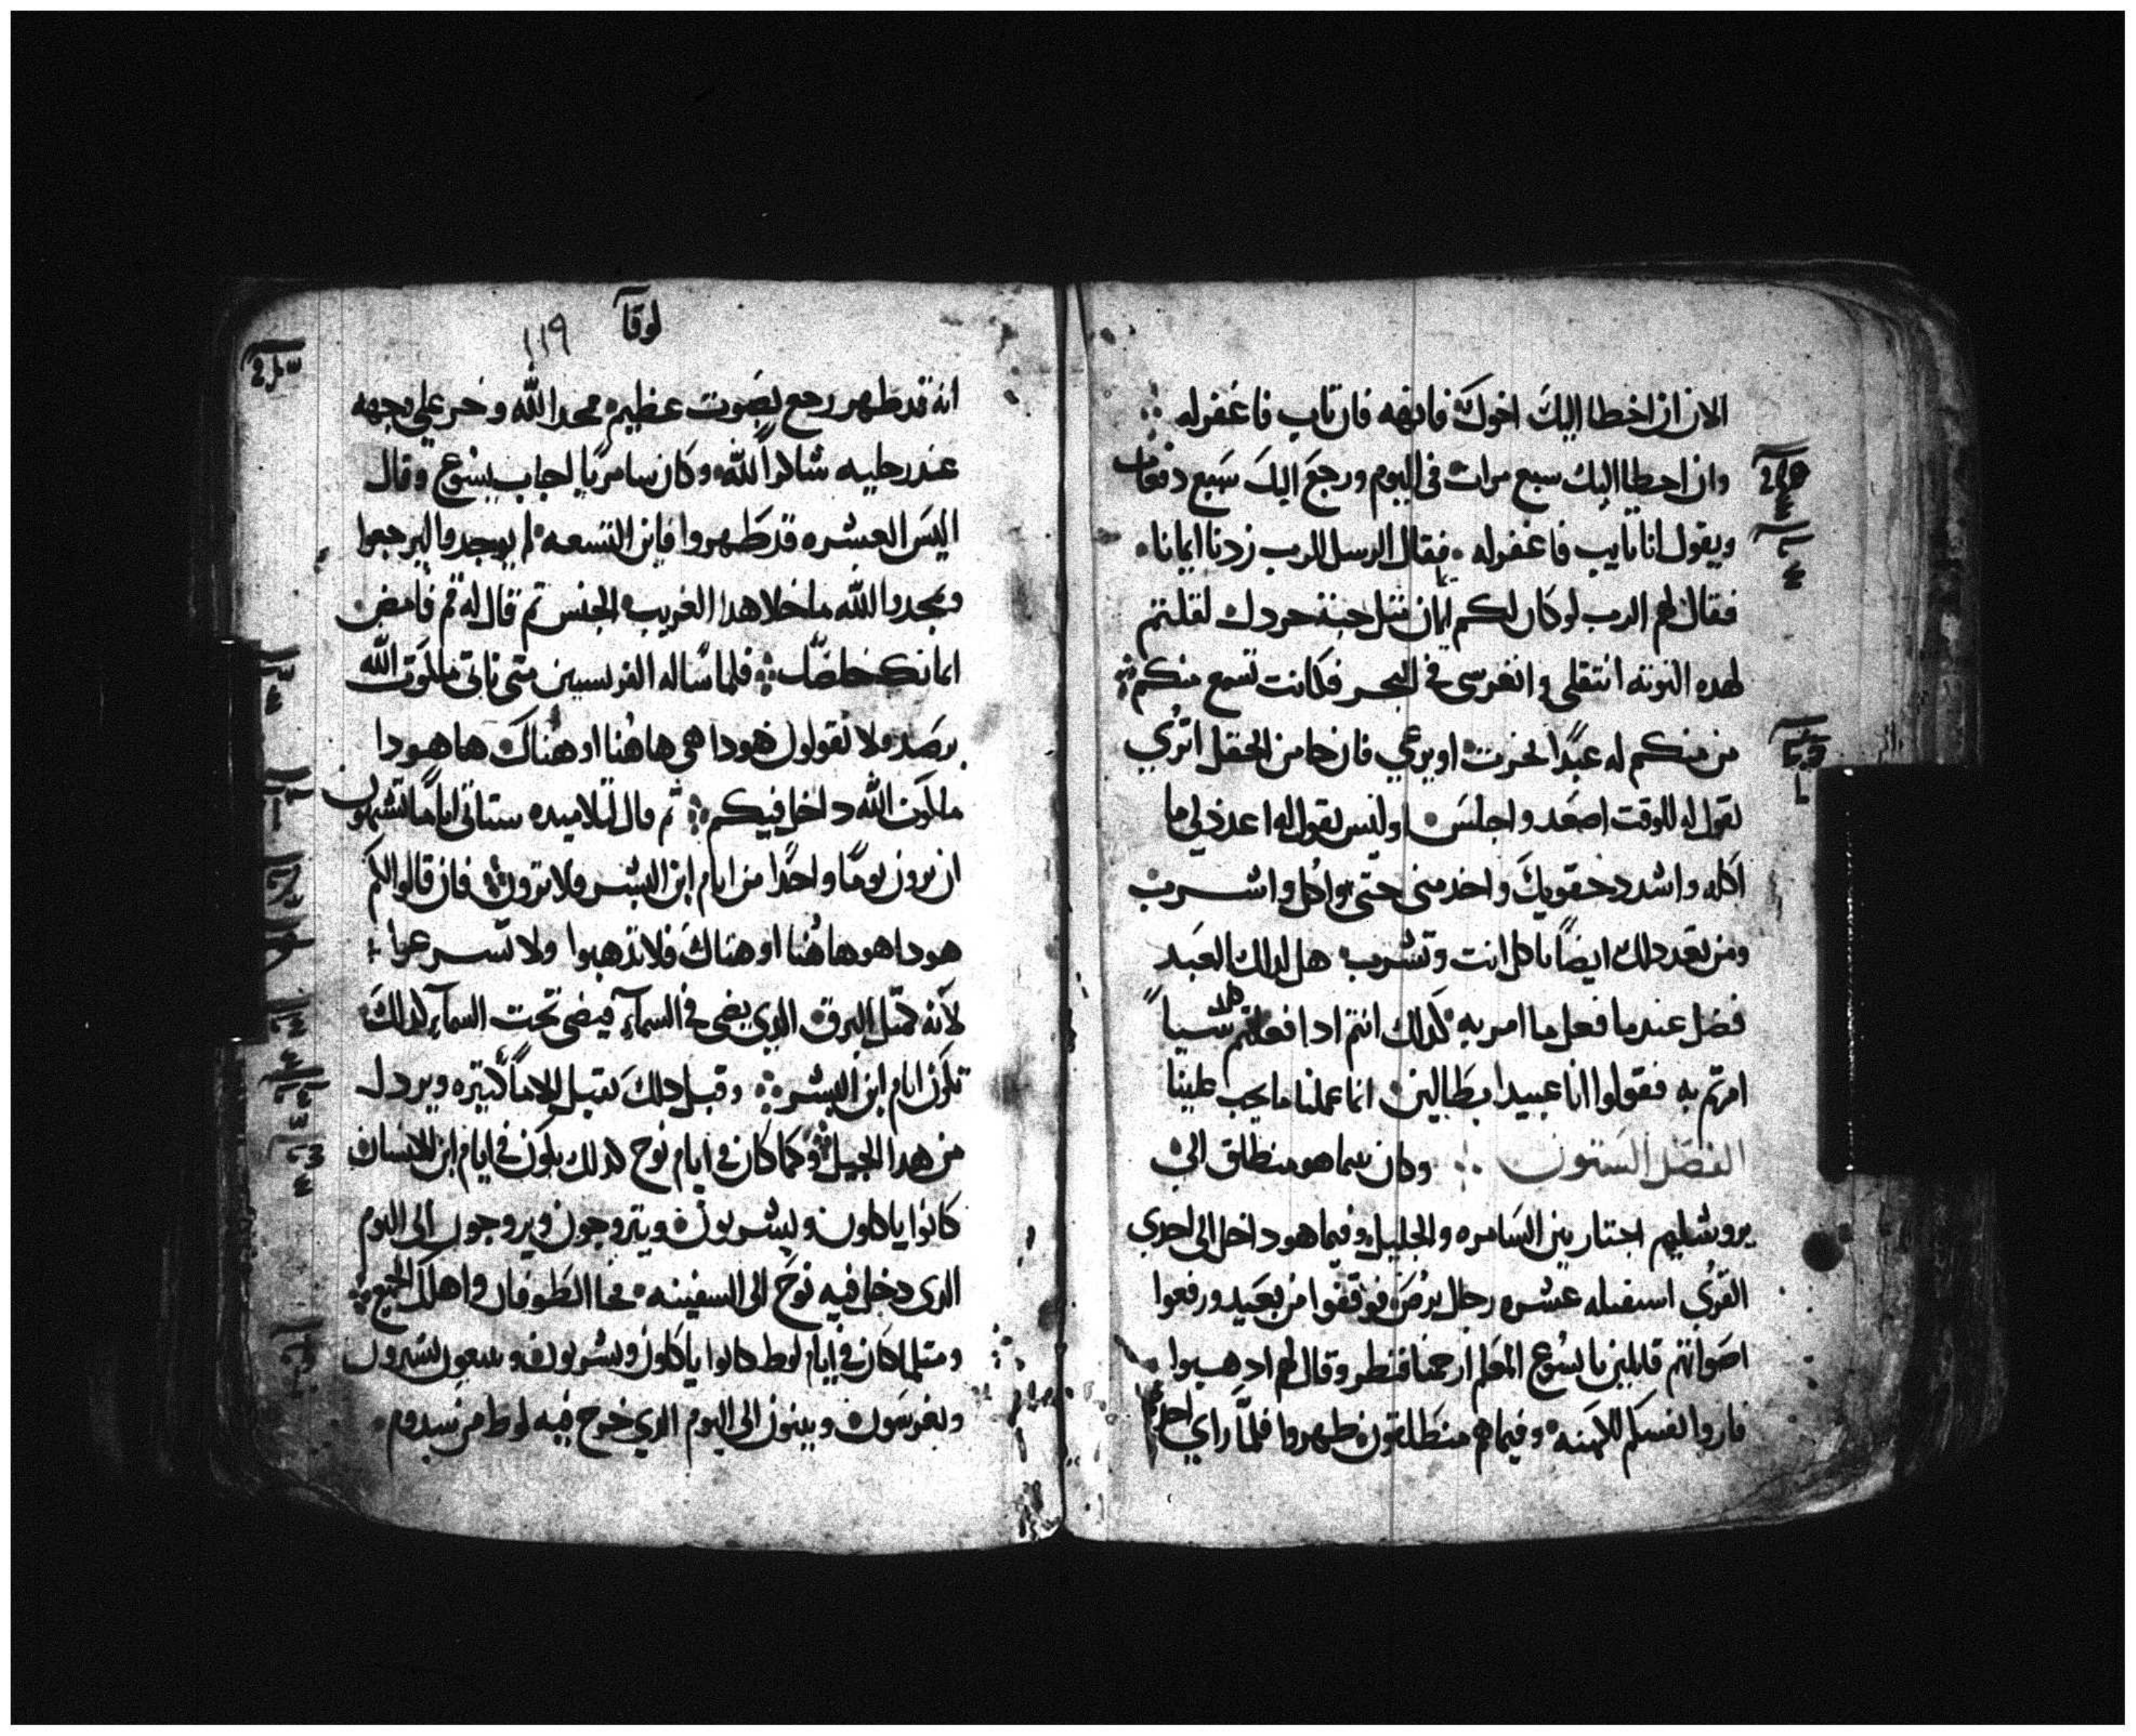 الان ان اخطا اليك اخوك فانهه فان تاب فاغفر له
وان اخطا اليك سبع مرات في اليوم ورجع اليك سبع دفعات
ويقول انا تايب فاغفر له فقال الرسل للرب زدنا ايمانا
فقال لهم الرب لو كان لكم ايمان مثل حبة خردل لقلتم
لهده التوته انتقلي وانغرسي في البحر فكانت تسمع منكم
من منكم له عبدا يحرت او يرعي فان جا من الحقل اتري
يقول له للوقت اصعد واجلس او ليس يقول له اعد لي ما
اكله واشدد حقويك واخدمني حتي اكل واشرب
ومن بعد دلك ايضا تاكل انت وتشرب هل لدلك العبد
فضل عند ما فعل ما امر به كدلك انتم ادا فعلتم كل شيا
امرتم به فقولوا انا عبيدا بطالين انما عملنا ما يجب علينا
الفصل الستون وكان بينما هو منطلق الي
يروشليم اجتاز بين السامره والجليل وفيما هو داخل الي احدي
القري استقبله عشره رجال برص فوقفوا من بعيد ورفعوا
اصواتهم قايلين يا يسوع المعلم ارحمنا فنظر وقال لهم ادهبوا
فاروا نفسكم للكهنه وفيما هم منطلقون طهروا فلما راي احدهم
لوقا
١١٩
انه قد طهر رجع بصوت عظيم ممجدا لله وخر علي وجهه
عند رجليه شاكرا لله وكان سامريا اجاب يسوع وقال
اليس العشره قد طهروا فاين التسعه لم يوجدوا ليرجعوا
ويمجدوا الله ما خلا هدا الغريب الجنس تم قال له قم فامض
ايمانك خلصك فلما ساله الفريسيين متي تاتي ملكوت الله
برصد ولا تقولون هودا هي هاهنا او هناك ها هودا
ملكوت الله داخل فيكم تم قال لتلاميده ستاتي اياما تشتهون
ان ترون يوما واحدا من ايام ابن البشر ولا ترون فان قالوا لكم
هودا هو هاهنا او هناك فلا تدهبوا ولا تسرعوا
لانه كمتل البرق الدي يضي في السماء فيضي تحت السماء كدلك
تكون ايام ابن البشر وقبل دلك يقبل الاما كتيره ويردل
من هدا الجيل وكما كان في ايام نوح كدلك يكون في ايام ابن الانسان
كانوا ياكلون ويشربون ويتزوجون ويزوجون الي اليوم
الدي دخل فيه نوح الي السفينه فجا الطوفان واهلك الجميع
ومتلما كان في ايام لوط كانوا ياكلون ويشربون ويبيعون يشترون
ويغرسون ويبنون الي اليوم الدي خرج فيه لوط من سدوم